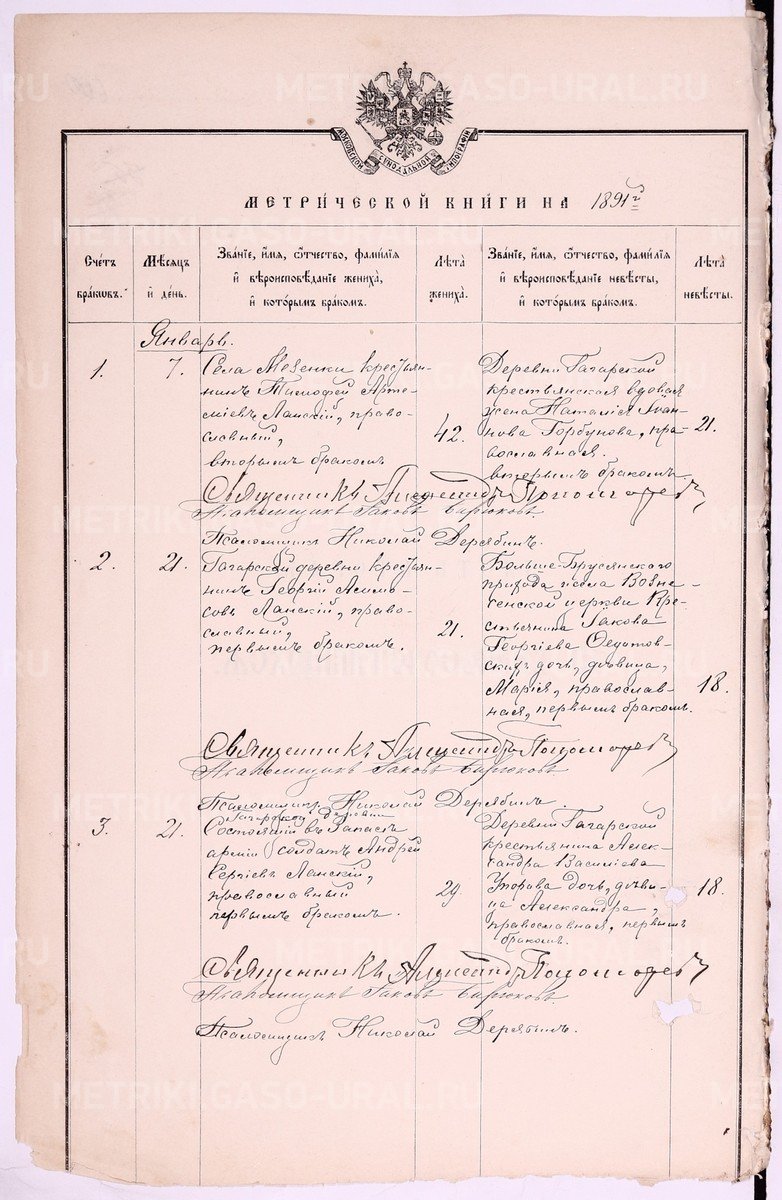 МОСКОВСКОЙ СУНОДАЛЬНОЙ ТИПОГРАФІИ
МЕТРИ́ЧЕСКОЙ КНИ́ГИ НА 1891 г
Сче́тъ бра́кωвъ.
Мѣ́сяцъ и҆ де́нь.
Зва́нїе, и҆́мя, ѻ҆́тчество, фами́лїя и҆ вѣроисповѣ́данїе жениха̀, и҆ кото́рымъ бра́комъ.
Лѣ́та жениха̀.
Зва́нїе, и҆́мя, ѻ҆́тчество, фами́лїя и҆ вѣроисповѣ́данїе невѣ́сты, и҆ кото́рымъ бра́комъ.
Лѣ́та невѣ́сты.
Январь.
1.
7.
Села Мезенки крестья-
нинъ Тимофей Арте-
міевъ Ланскій, право-
славный,
вторымъ бракомъ
42.
Деревни Гагарской
крестьянская вдовая
жена Наталія Іоан-
нова Горбунова, пра-
вославная.
вторымъ бракомъ
21.
Священникъ Александръ Пономаревъ
Іаковъ Бирюковъ.
Псаломщикъ Николай Дерябинъ.
2.
21.
Гагарской деревни крестья-
нинъ Георгій
Ланскій, право-
славный,
первымъ бракомъ.
21.
Больше-Брусянского
прихода села Возне-
сенской церкви кре-
стьянина Іакова
Георгіева Федотов-
скихъ дочь, дѣвица,
Марія, православ-
ная, первымъ бракомъ.
18.
Священникъ Александръ Пономаревъ
Іаковъ Бирюковъ
Псаломщикъ Николай Дерябинъ.
3.
21.
Гагарской деревни
Состоящій въ запасѣ
арміи солдатъ Андрей
Сергіевъ Ланскій,
православный
первымъ бракомъ.
29
Деревни Гагарской
крестьянина Алек-
сандра Василіева
дочь, дѣви-
ца Александра,
православная, первымъ
бракомъ.
18.
Священникъ Александръ Пономаревъ
Іаковъ Бирюковъ.
Псаломщикъ Николай Дерябинъ.
METRIKI.GASO-URAL.RU